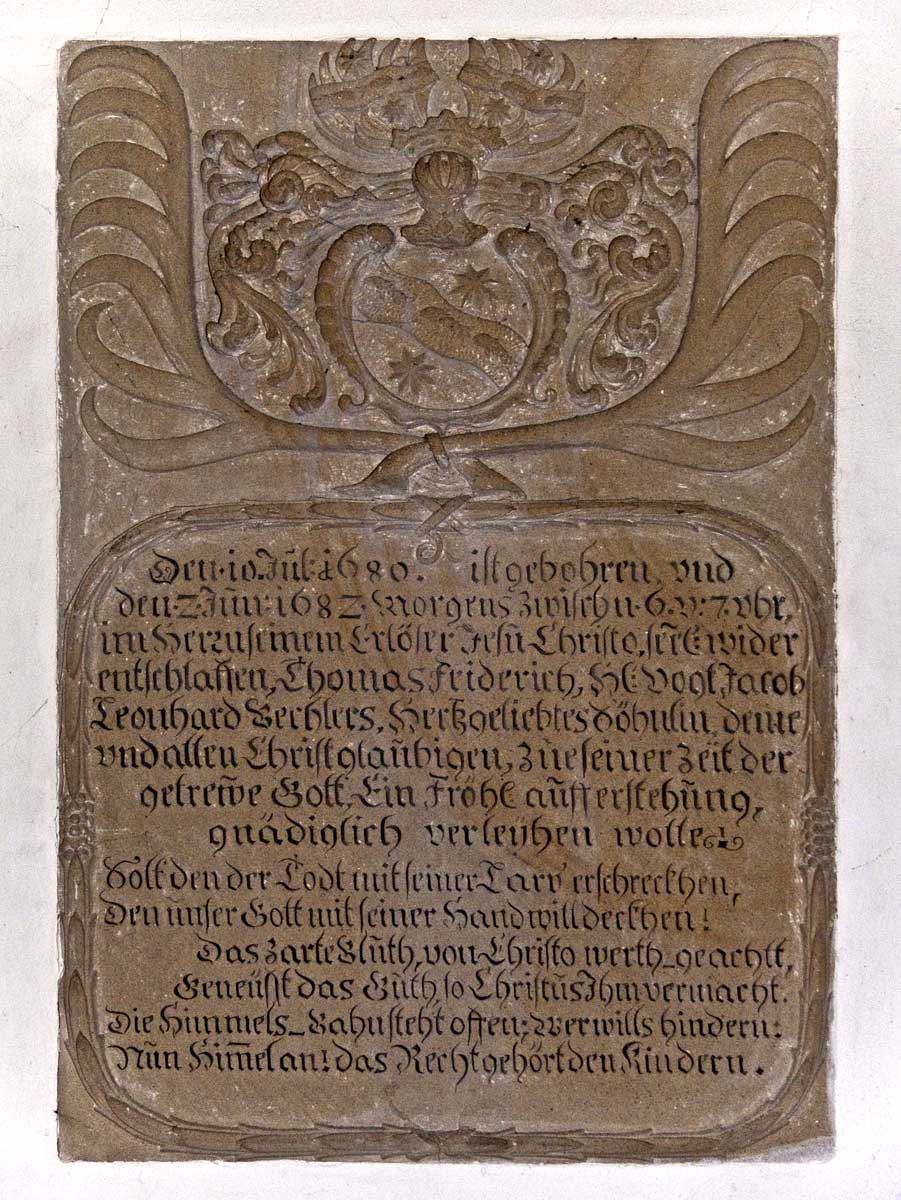 Den·10.Jul·1680. ist gebohren, vnd
den·2·Jŭn·1682·Morgens Zwischn·6·v:7·vhr,
im Herzu seinem Erlöser Jesŭ Christo, seel: wider
entschlaffen, Thomas Friderich, H: Vogt Jacob
Leonhard Bechlers, Hertzgeliebtes Söhnlin, deme
vnd allen Christglaŭbigen, Zue seiner Zeit der
getrewe Gott, Ein Fröhl: aŭfferstehŭng,
gnädiglich verleyhen wolle
Solt den der Todt mit seiner Larv erschreckhen,
Den ŭnser Gott mit seiner Hand will deckhen!
Das zarte Blŭth, von Christo werth-geacht,
Geneüst das Gŭth, so Christŭs Ihm vermacht.
Die Himmels-Bahn steht offen; Wer wills hindern:
Nŭn Him̄el an! das Recht gehört den Kindern.